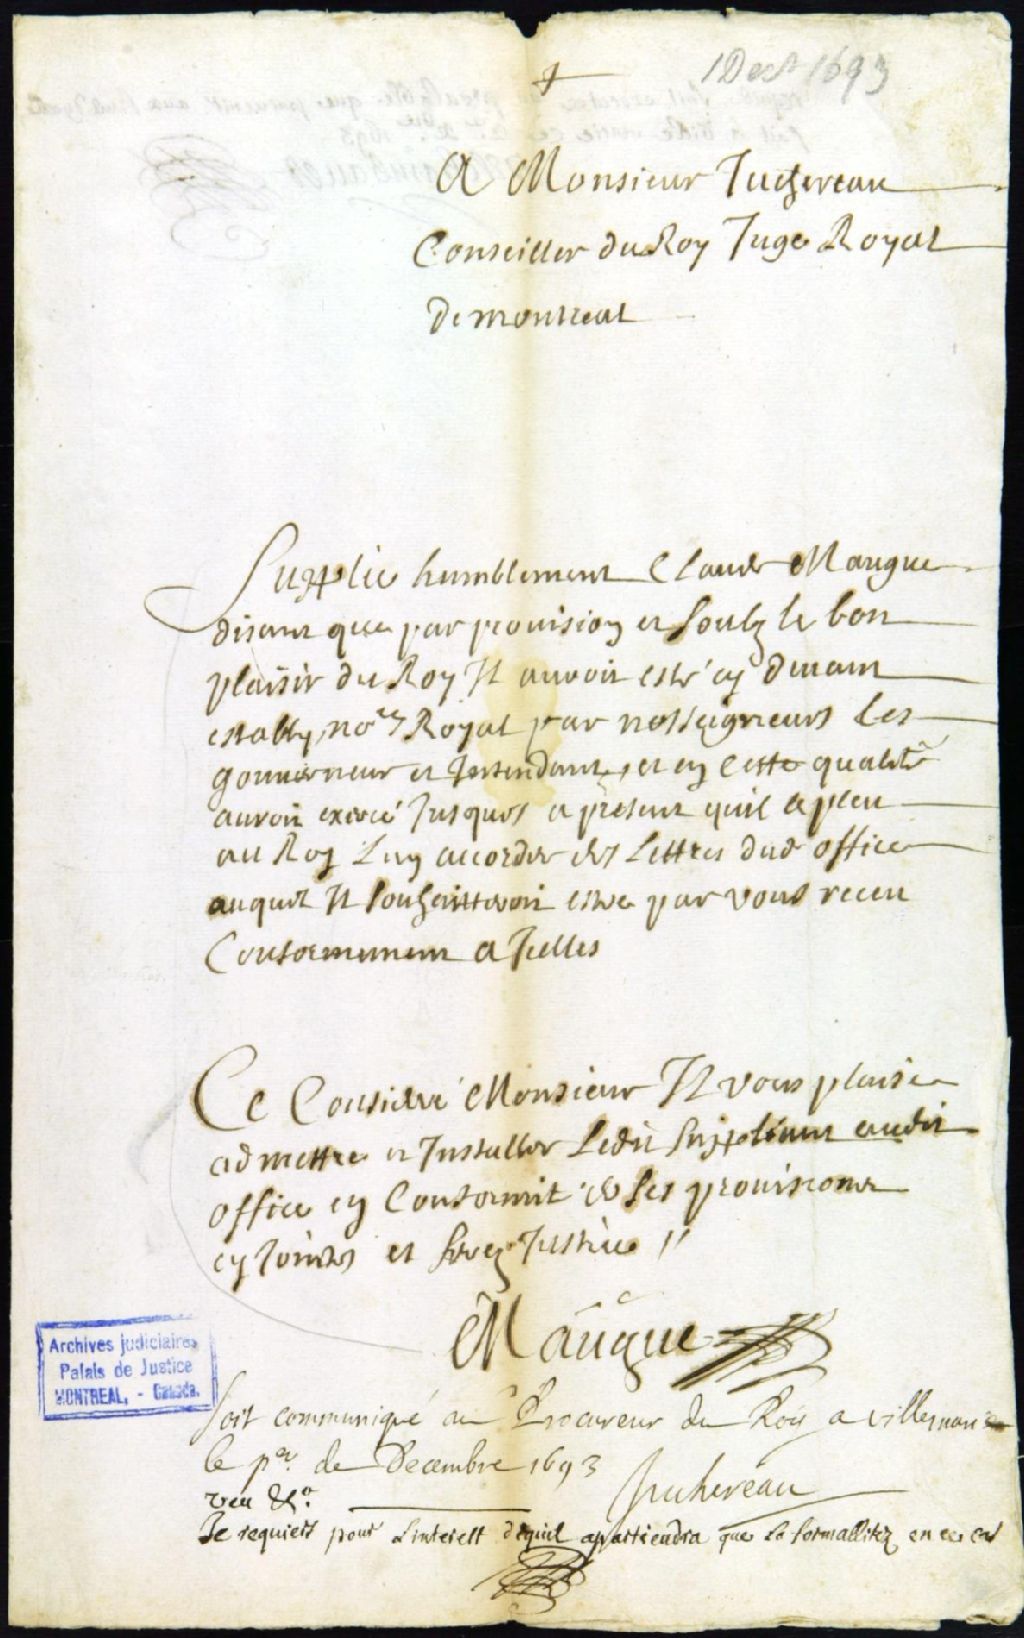 1 Decr 1693
A Monsieur Juchereau
Conseiller du Roy Juge Royal
de montreal
Supplie humblement Claude Maugue
disant que par provision et soubz le bon
plaisir du Roy Il auroit esté cy devant
estably nore Royal par nosseigneurs les
gouverneur et Intendant, et en cette qualité
auroit exercé Jusques a present quil a pleu
au Roy luy accorder des Lettres dud office
auquel Il souhaitteroit estre par vous receu
Conformement a Icelles
Ce Consideré Monsieur Il vous plaise
admettre et Installer Ledit suppliant audit
office en Conformité de ses provisions
cy Jointes et ferez Justice //
CMaugue
Archives judiciaires
Palais de Justice
MONTREAL, - Canada.
Soit communiqué au Procureur du Roy a villemarie
le per. de Decembre 1693
Juchereau
veu &a.
Je requiers pour Linterest dequil apartiendra que la formallitez en ce cas